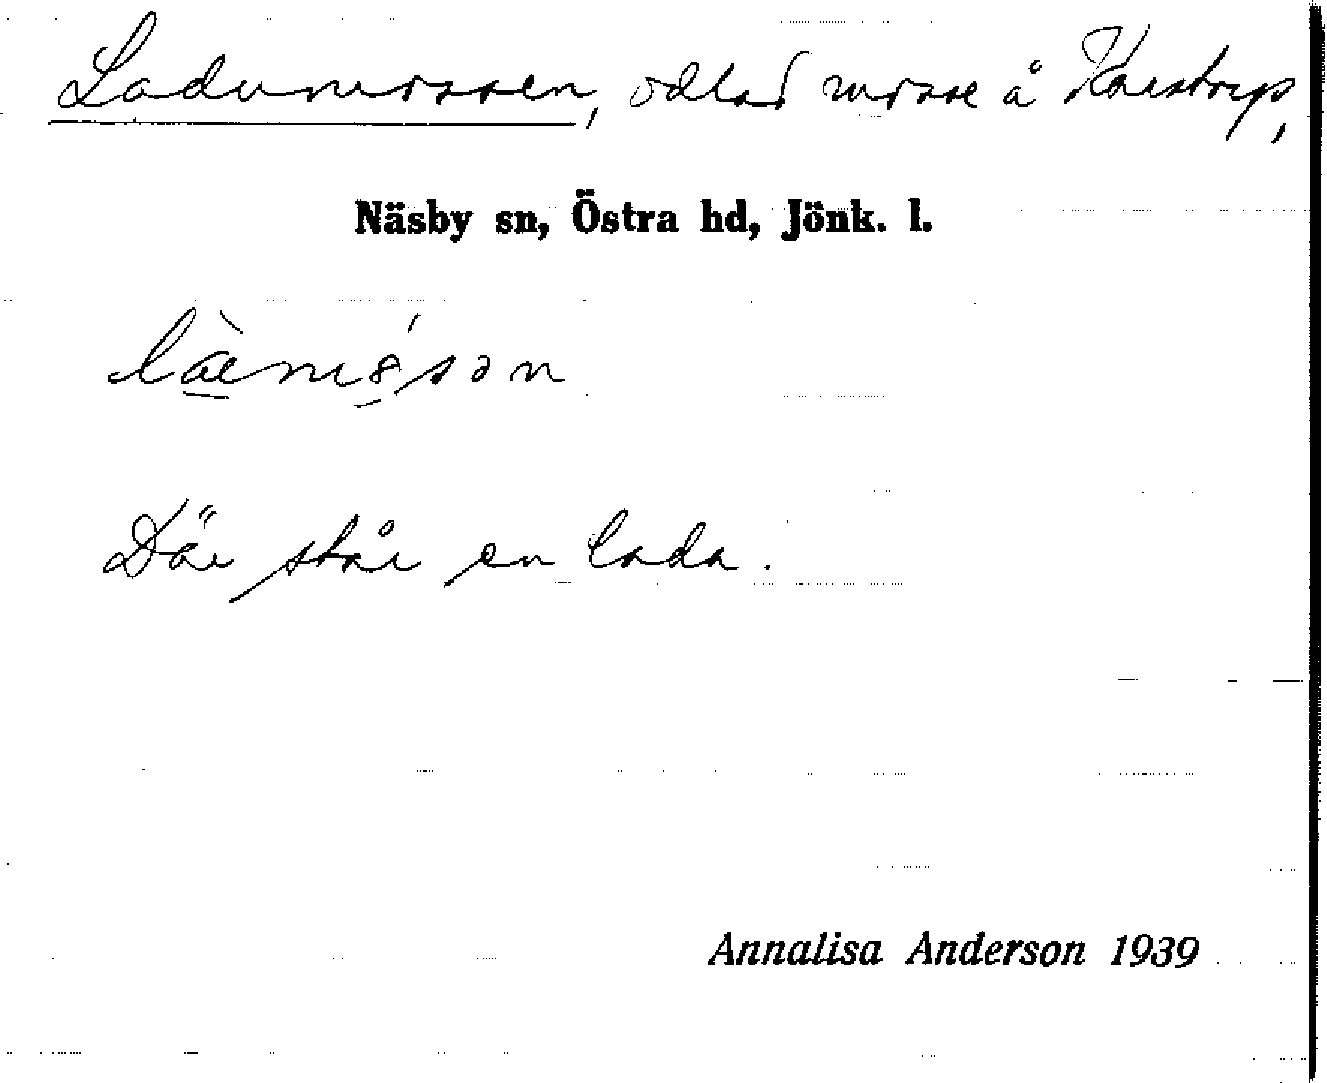 Ladumossen, odlad mosse å Karstorp,
Näsby sn, Östra hd, Jönk. l.
Där står en lada.
Annalisa Anderson 1939